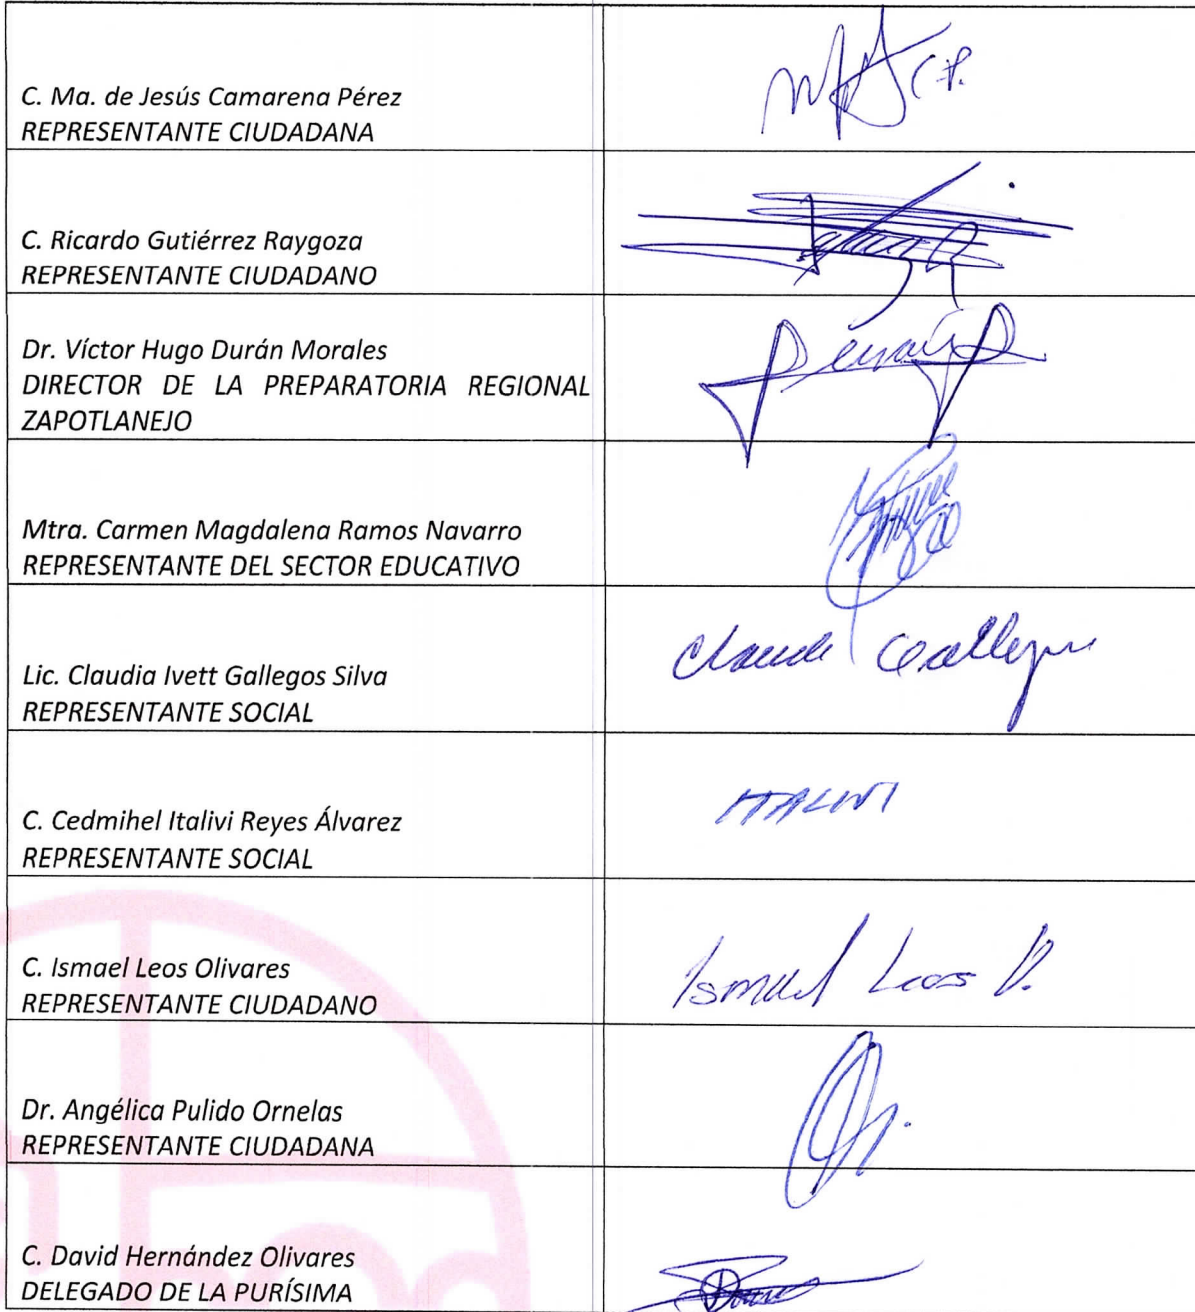 C. Ma. de Jesús Camarena Pérez
REPRESENTANTE CIUDADANA
C. Ricardo Gutiérrez Raygoza
REPRESENTANTE CIUDADANO
Dr. Víctor Hugo Durán Morales
DIRECTOR DE LA PREPARATORIA REGIONAL
ZAPOTLANEJO
Mtra. Carmen Magdalena Ramos Navarro
REPRESENTANTE DEL SECTOR EDUCATIVO
Lic. Claudia Ivett Gallegos Silva
REPRESENTANTE SOCIAL
C. Cedmihel Italivi Reyes Álvarez
REPRESENTANTE SOCIAL
ITALIVI
C. Ismael Leos Olivares
REPRESENTANTE CIUDADANO
Ismael Leos O.
Dr. Angélica Pulido Ornelas
REPRESENTANTE CIUDADANA
C. David Hernández Olivares
DELEGADO DE LA PURÍSIMA